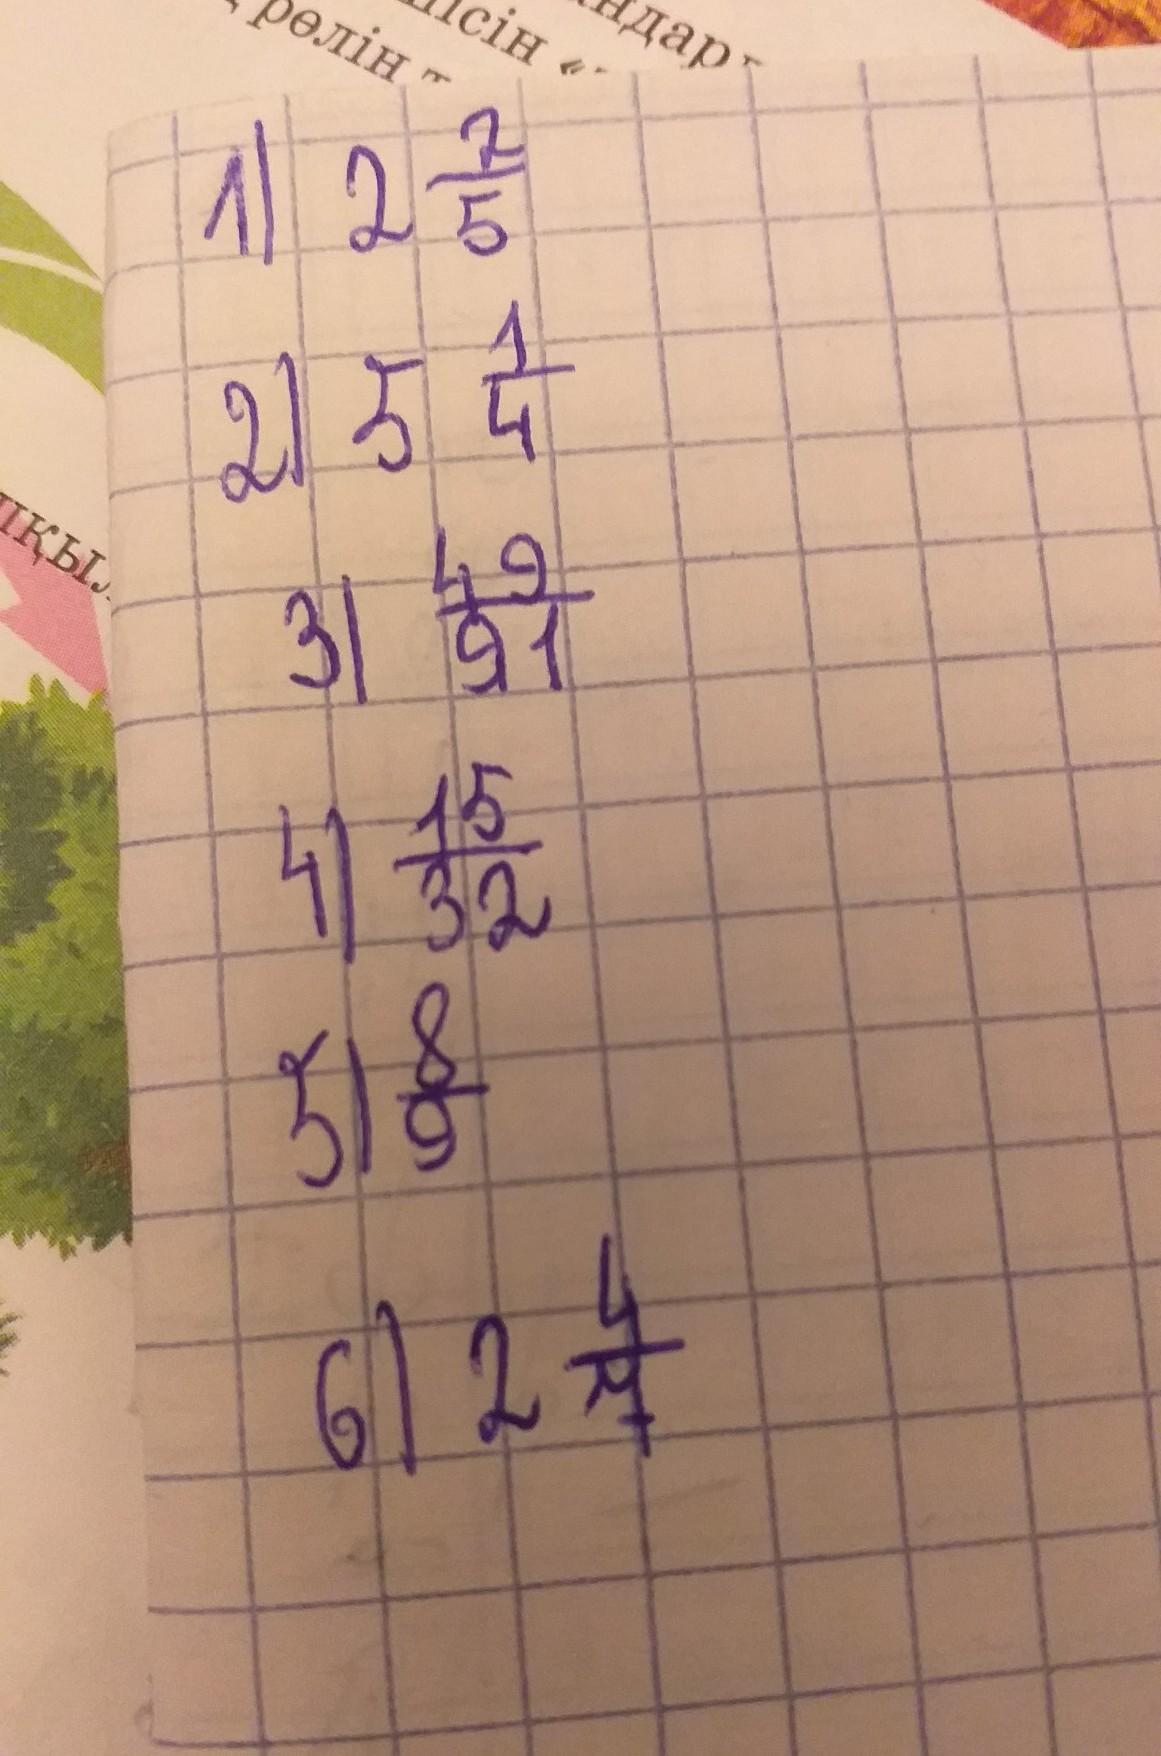 андар
пісін «
рөлін
қыл
1) 2 7/5
2) 5 1/4
3) 49/91
4) 15/32
5) 8/9
6) 2 4/7